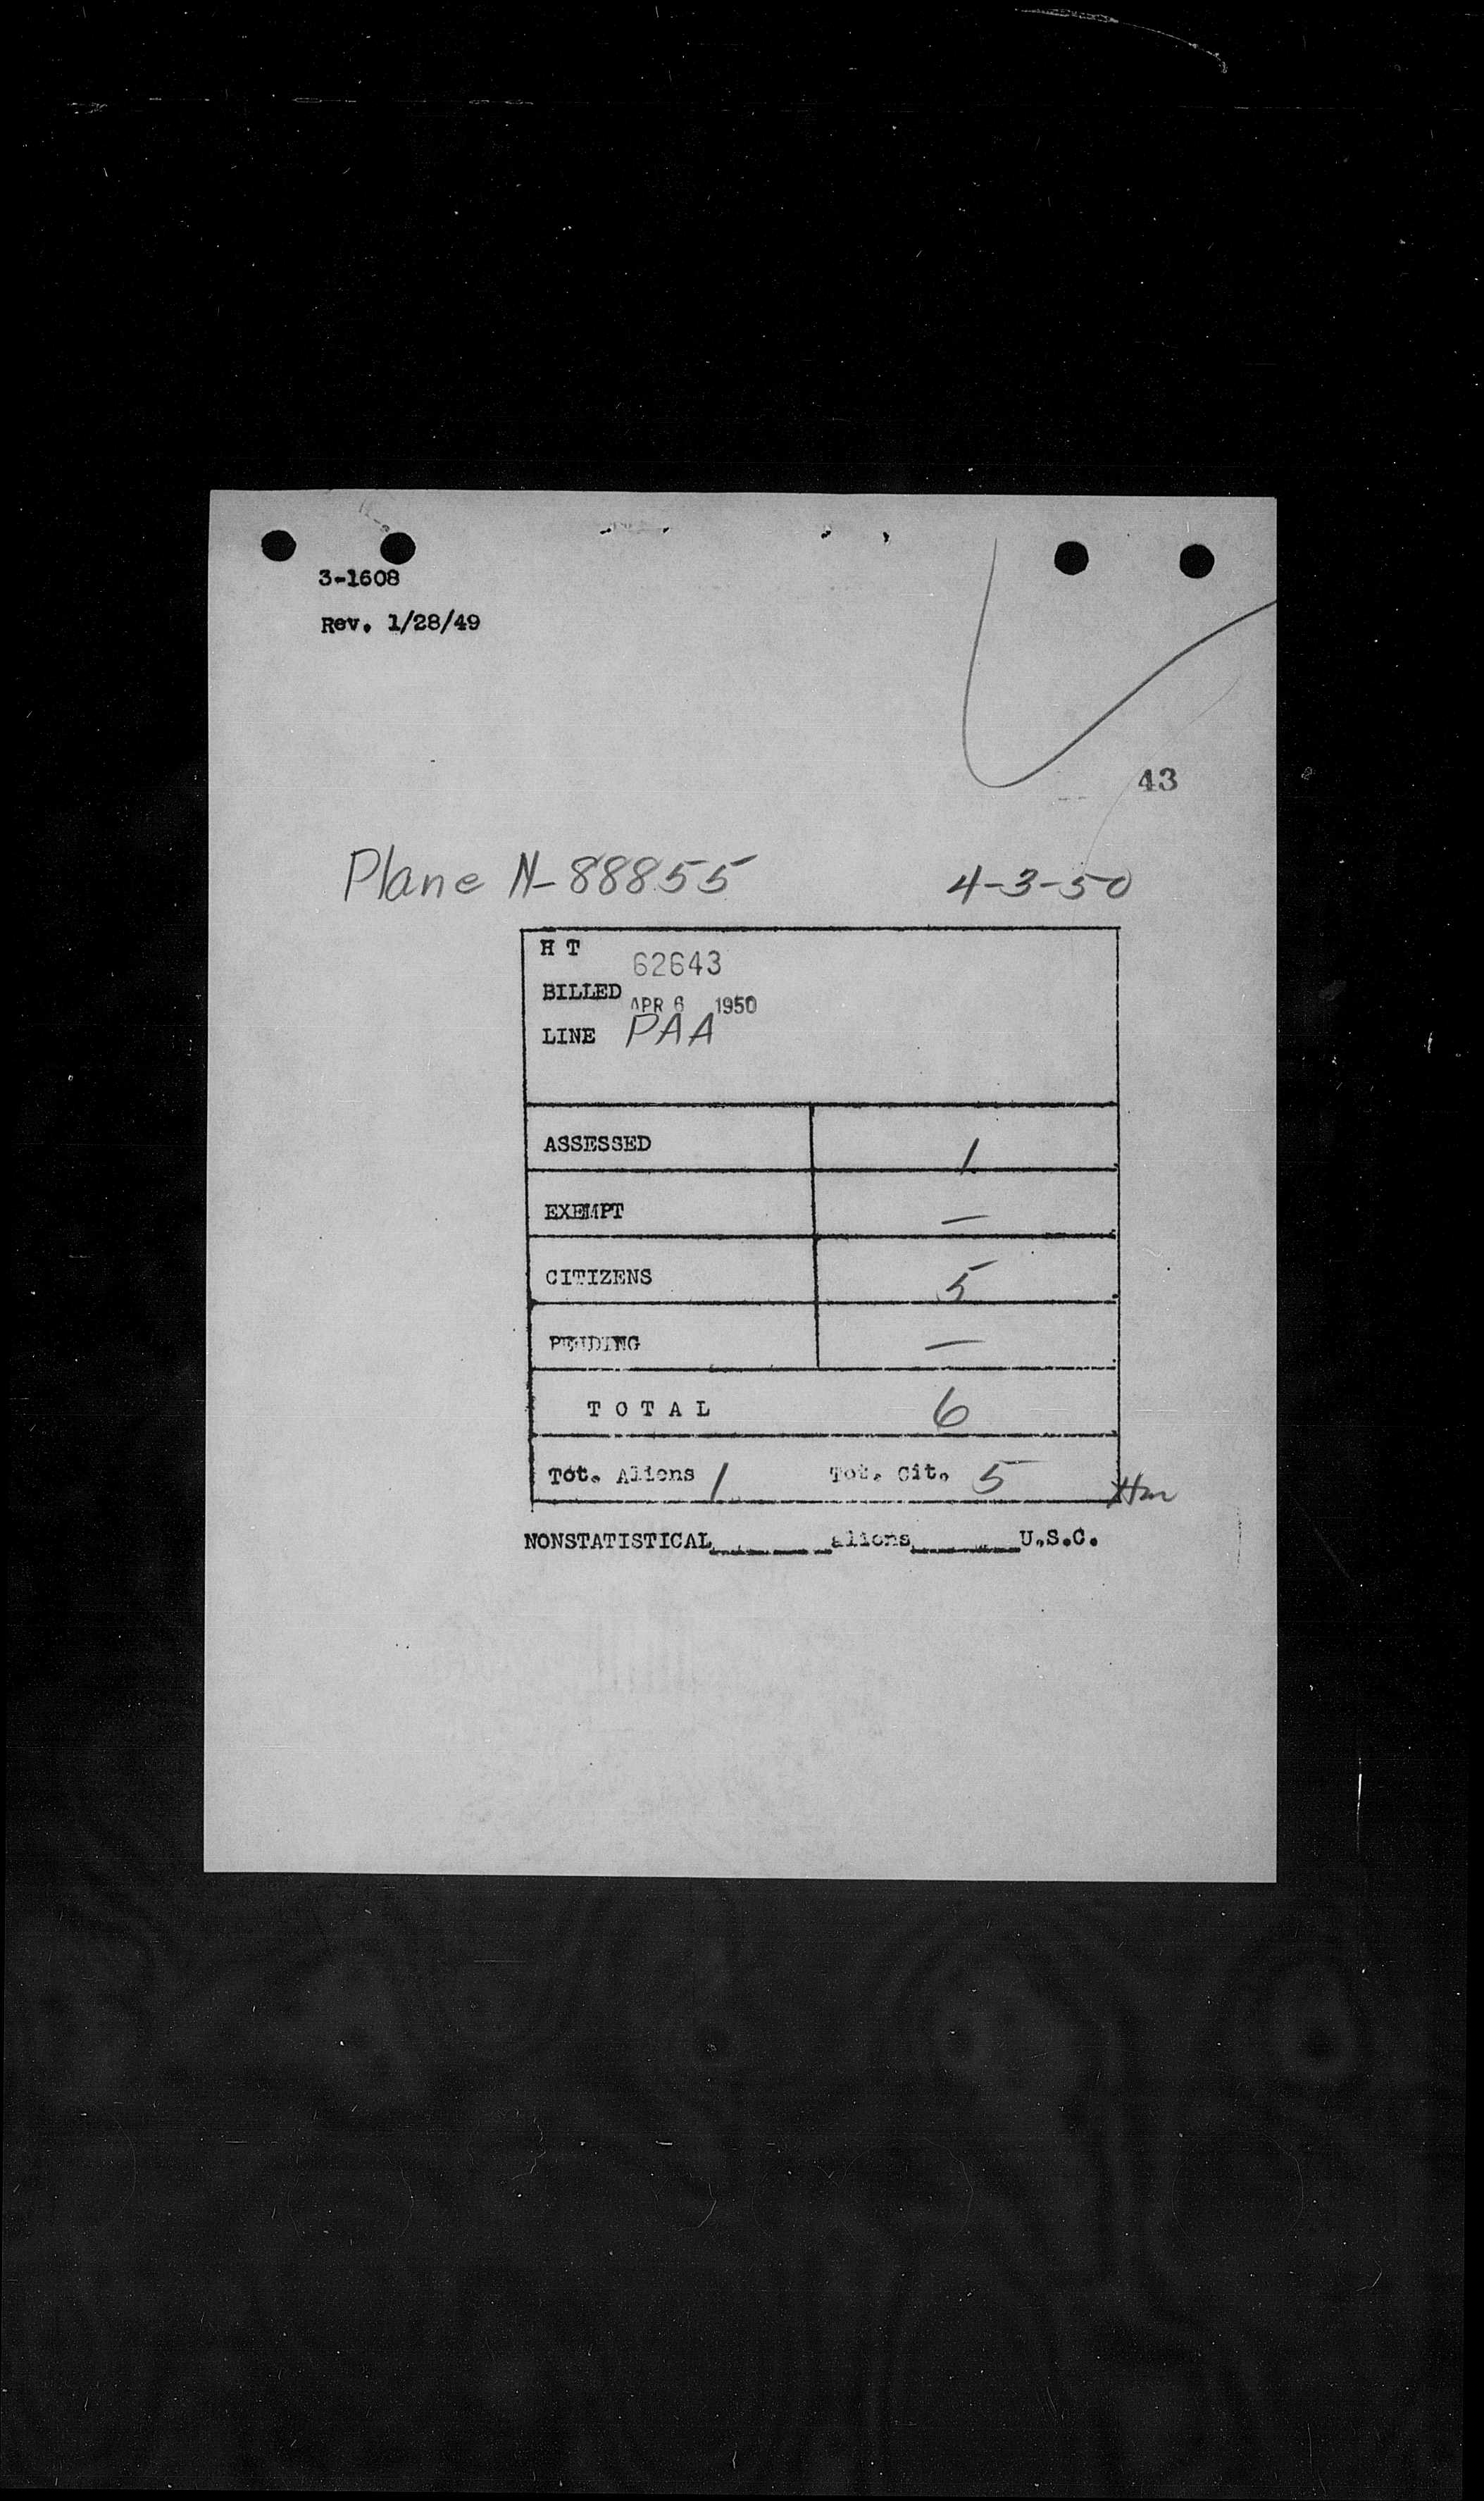 3-1608
Rev. 1/28/49
43
Plane N-88855 4-3-50
H T 62643
BILLED APR 6 1950
LINE PAA
ASSESSED 1
EXEMPT —
CITIZENS 5
PENDING —
T O T A L 6
Tot. Aliens 1 Tot. Cit. 5
NONSTATISTICAL______aliens______U.S.C.